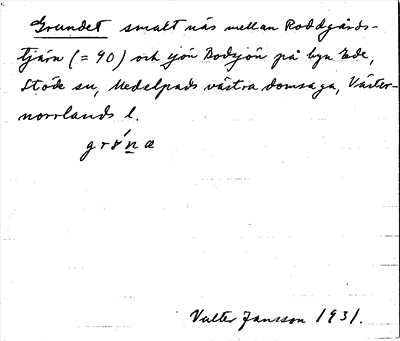 Grundet smalt näs mellan Roddgårds-
tjärn (= 90) och sjön Bodsjön på byn Ede,
Stöde sn, Medelpads västra domsaga, Väster-
norrlands l.
Valter Jansson 1931.